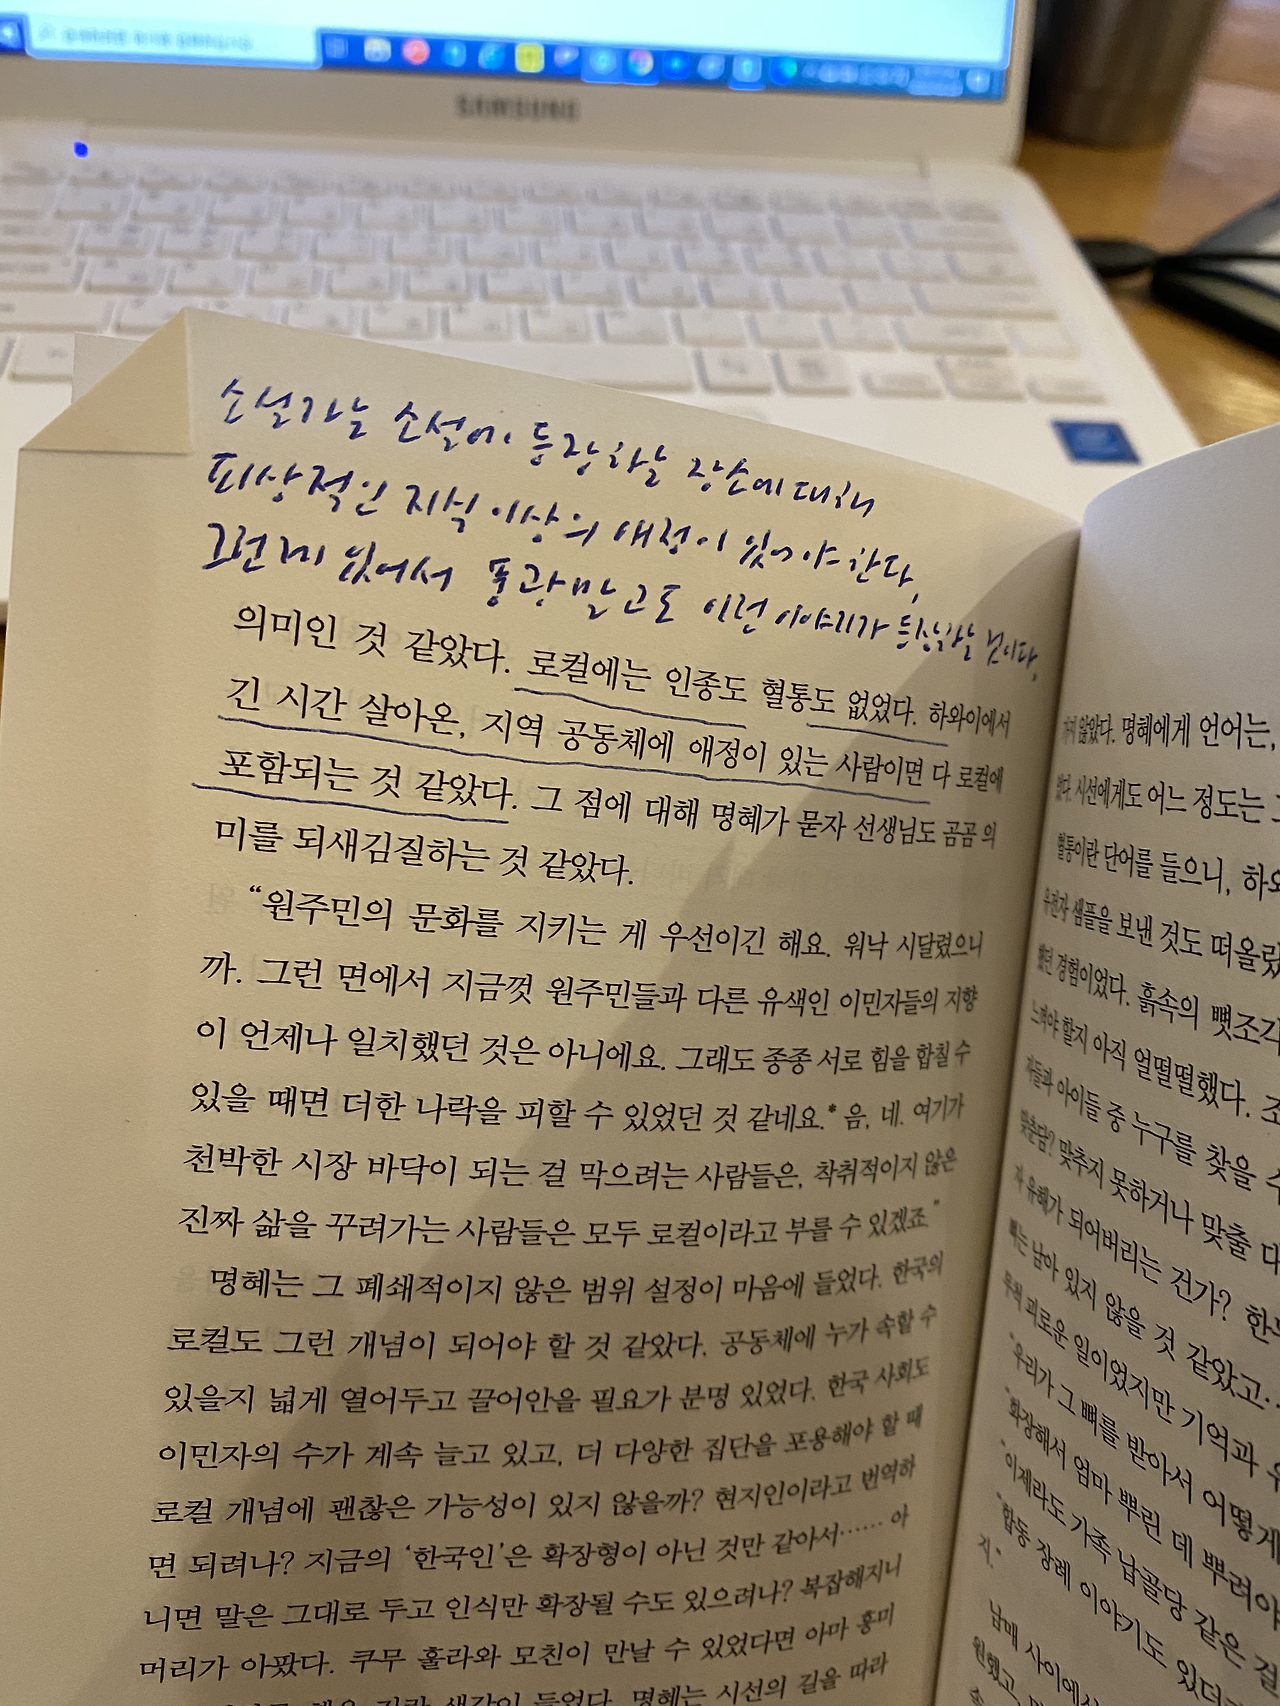 SAMSUNG
소설가는 소설에 등장하는 장소에 대해
피상적인 지식 이상의 애정이 있어야 한다,
그런게 있어서 풍광 말고도 이런 이야기가 등장하는 것이다,
의미인 것 같았다. 로컬에는 인종도 혈통도 없었다. 하와이에서
긴 시간 살아온, 지역 공동체에 애정이 있는 사람이면 다 로컬에
포함되는 것 같았다. 그 점에 대해 명혜가 묻자 선생님도 곰곰 의
미를 되새김질하는 것 같았다.
“원주민의 문화를 지키는 게 우선이긴 해요. 워낙 시달렸으니
까. 그런 면에서 지금껏 원주민들과 다른 유색인 이민자들의 지향
이 언제나 일치했던 것은 아니에요. 그래도 종종 서로 힘을 합칠 수
있을 때면 더한 나락을 피할 수 있었던 것 같네요.* 음, 네. 여기가
천박한 시장 바닥이 되는 걸 막으려는 사람들은, 착취적이지 않은
진짜 삶을 꾸려가는 사람들은 모두 로컬이라고 부를 수 있겠죠.”
명혜는 그 폐쇄적이지 않은 범위 설정이 마음에 들었다. 한국의
로컬도 그런 개념이 되어야 할 것 같았다. 공동체에 누가 속할 수
있을지 넓게 열어두고 끌어안을 필요가 분명 있었다. 한국 사회도
이민자의 수가 계속 늘고 있고, 더 다양한 집단을 포용해야 할 때
로컬 개념에 괜찮은 가능성이 있지 않을까? 현지인이라고 번역하
면 되려나? 지금의 ‘한국인’은 확장형이 아닌 것만 같아서…… 아
니면 말은 그대로 두고 인식만 확장될 수도 있으려나? 복잡해지니
머리가 아팠다. 쿠무 훌라와 모친이 만날 수 있었다면 아마 흥미
생각이 들었다. 명혜는 시선의 길을 따라
않았다. 명혜에게 언어는,
시선에게도 어느 정도는
혈통이란 단어를 들으니, 하와
유전자 샘플을 보낸 것도 떠올랐
했던 경험이었다. 흙속의 뼛조각
느껴야 할지 아직 얼떨떨했다. 조
자들과 아이들 중 누구를 찾을 수
맞춘담? 맞추지 못하거나 맞출 대
자 유해가 되어버리는 건가? 한
뼈는 남아 있지 않을 것 같았고…
무척 괴로운 일이었지만 기억과 유
“우리가 그 뼈를 받아서 어떻게
“화장해서 엄마 뿌린 데 뿌려야
“이제라도 가족 납골당 같은 걸
“합동 장례 이야기도 있던
지.”
남매 사이에서
원했고,